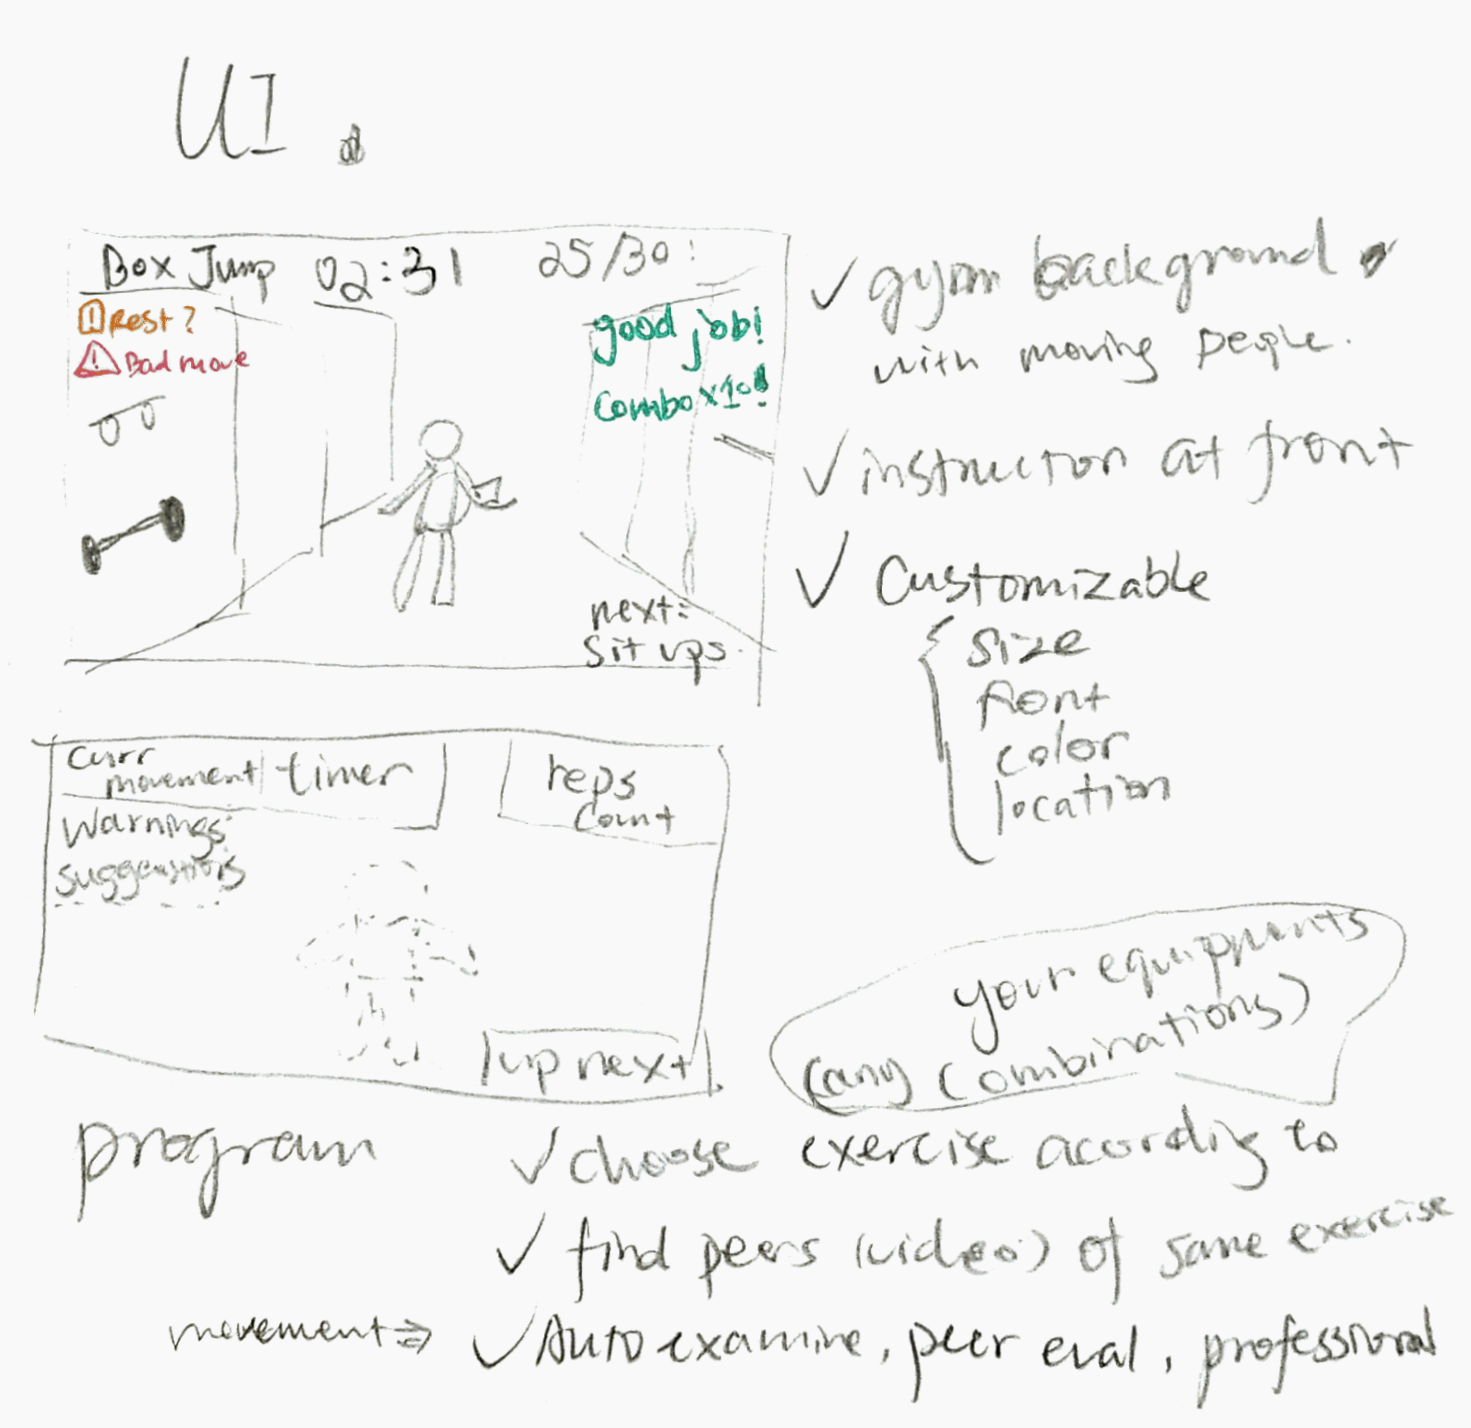 UI.
Box Jump 02:31 25/30!
! Rest?
! Bad move
good job!
Combo x10!
next:
Sit ups.
✓ gym background
with moving people.
✓ instructor at front
✓ Customizable
size
font
color
location
curr
movement
timer
reps
count
Warnings
suggestions
up next
your equippments
(any combinations)
program
✓ choose exercise acording to
✓ find peers (video) of same exercise
movement ⇒ ✓ Auto examine, peer eval, professional